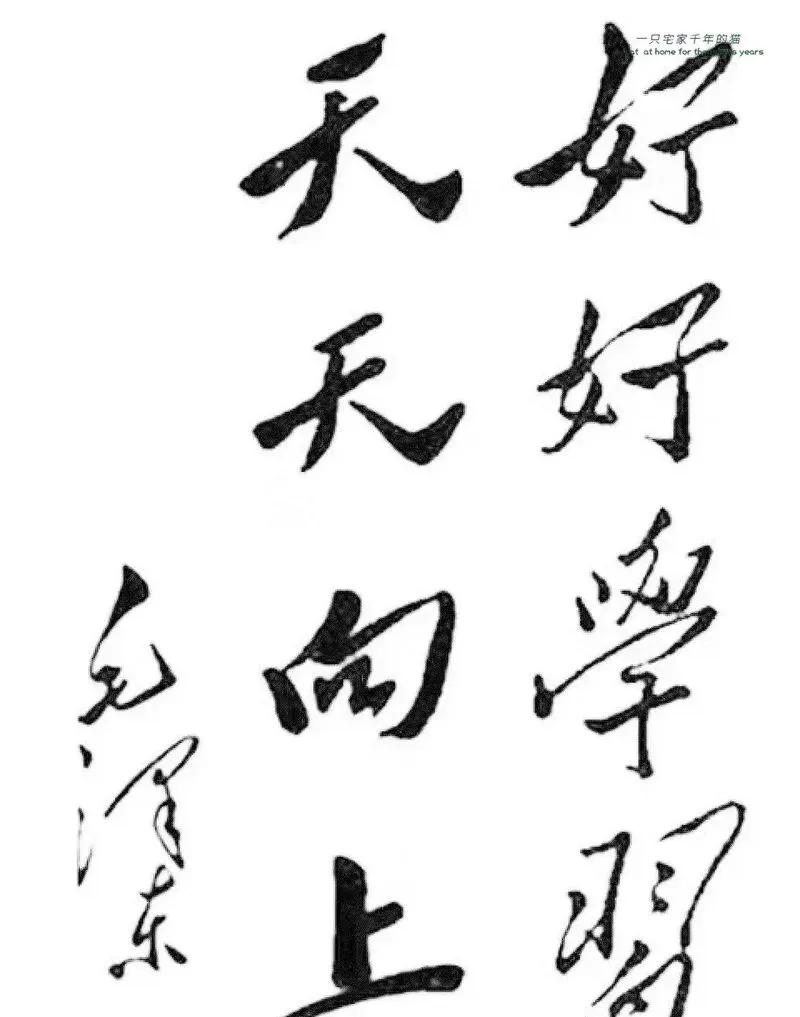 好好學習
天天向上
毛泽东
一只宅家千年的猫
at home for years